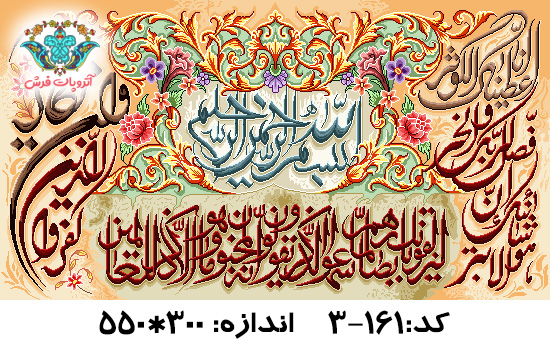 آتروپات فرش
بسم الله الرحمن الرحیم
انا اعطیناک الکوثر
فصل لربک وانحر
ان شانئک هو الابتر
وان یکاد الذین کفروا
لیزلقونک بابصارهم لما سمعوا الذکر ویقولون انه لمجنون وما هو الا ذکر للعالمین
کد:۱۶۱-۳ اندازه: ۳۰۰*۵۵۰